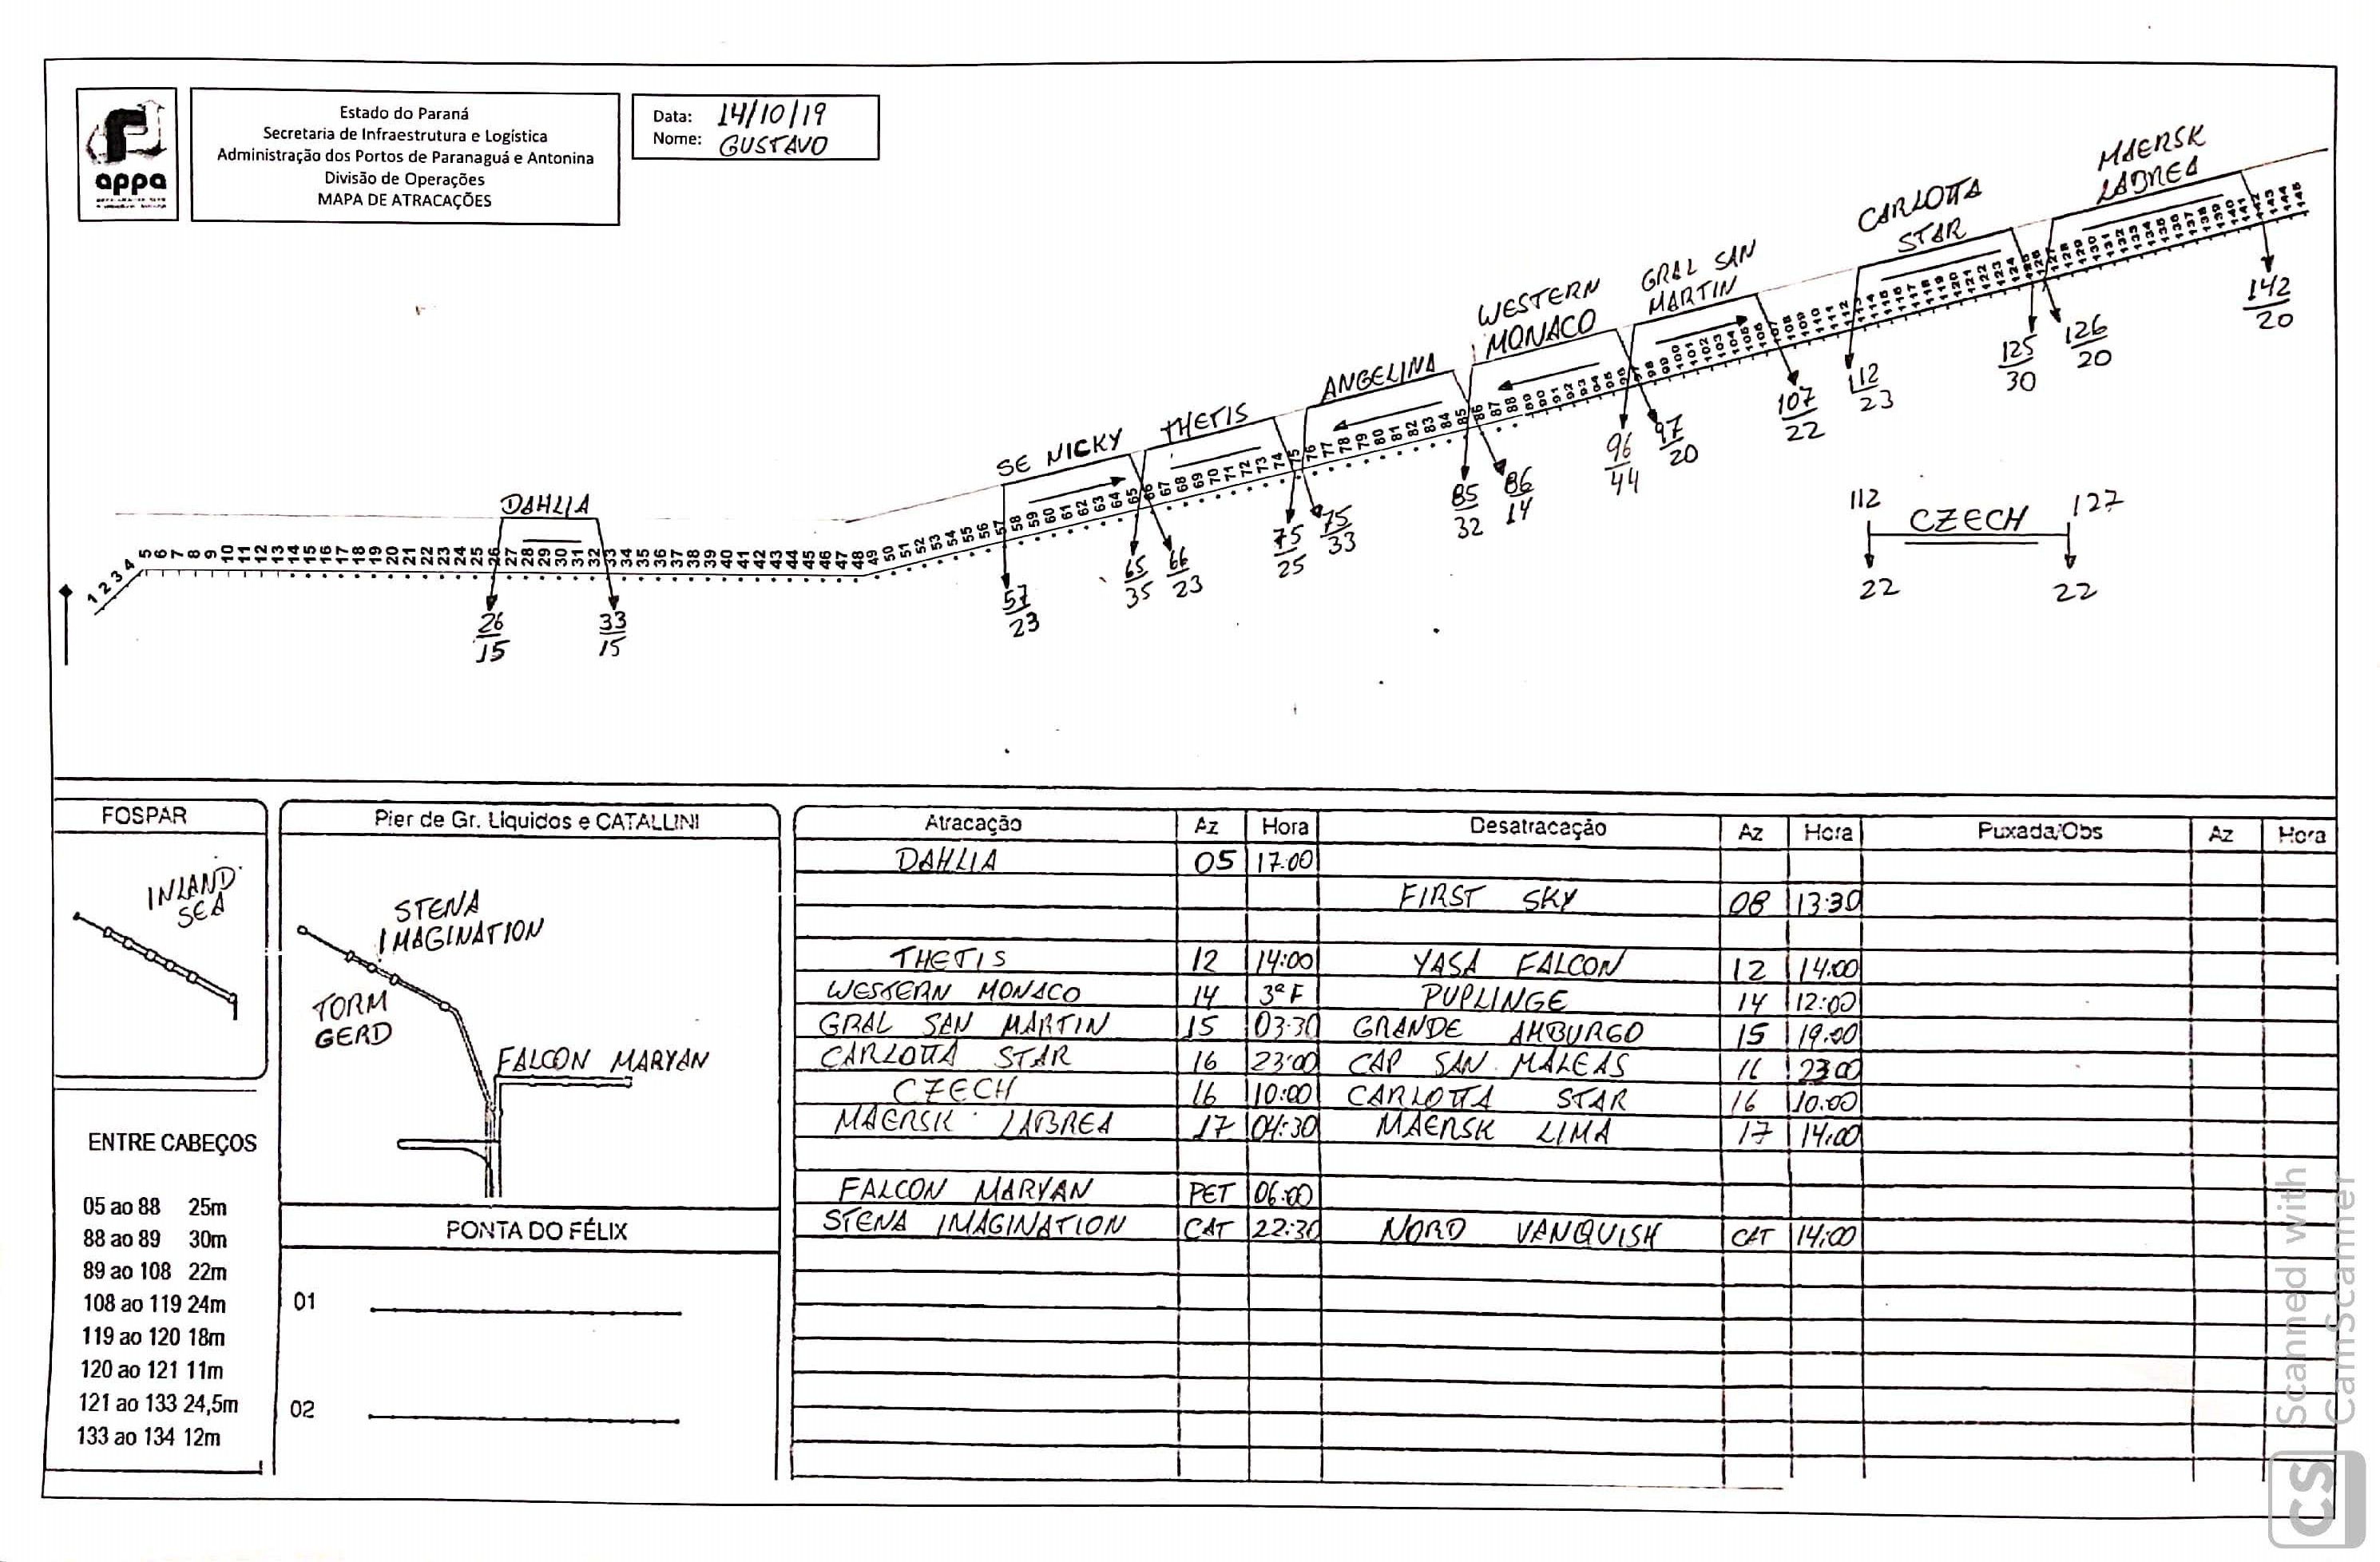 appa
Estado do Paraná
Secretaria de Infraestrutura e Logística
Administração dos Portos de Paranaguá e Antonina
Divisão de Operações
MAPA DE ATRACAÇÕES
Data: 14/10/19
Nome: GUSTAVO
MAERSK
LABREA
CARLOTTA
STAR
GRAL SAN
MARTIN
WESTERN
MONACO
ANGELINA
THETIS
SE NICKY
DAHLIA
1 2 3 4 5 6 7 8 9 10 11 12 13 14 15 16 17 18 19 20 21 22 23 24 25 26 27 28 29 30 31 32 33 34 35 36 37 38 39 40 41 42 43 44 45 46 47 48 49 50 51 52 53 54 55 56 57 58 59 60 61 62 63 64 65 66 67 68 69 70 71 72 73 74 75 76 77 78 79 80 81 82 83 84 85 86 87 88 89 90 91 92 93 94 95 96 97 98 99 100 101 102 103 104 105 106 107 108 109 110 111 112 113 114 115 116 117 118 119 120 121 122 123 124 125 126 127 128 129 130 131 132 133 134 135 136 137 138 139 140 141 142 143 144 145
26/15
33/15
57/23
65/35
66/23
75/25
75/33
85/32
86/14
96/44
97/20
107/22
112/23
125/30
126/20
142/20
112 CZECH 127
22 22
FOSPAR
INLAND
SEA
ENTRE CABEÇOS
05 ao 88 25m
88 ao 89 30m
89 ao 108 22m
108 ao 119 24m
119 ao 120 18m
120 ao 121 11m
121 ao 133 24,5m
133 ao 134 12m
Pier de Gr. Liquidos e CATALLINI
STENA
IMAGINATION
TORM
GERD
FALCON MARYAN
PONTA DO FÉLIX
01
02
Atracação Az Hora Desatracação Az Hora Puxada/Obs Az Hora
DAHLIA 05 17:00
FIRST SKY 08 13:30
THETIS 12 14:00 YASA FALCON 12 14:00
WESTERN MONACO 14 3ª F PUPLINGE 14 12:00
GRAL SAN MARTIN 15 03:30 GRANDE AMBURGO 15 19:00
CARLOTTA STAR 16 23:00 CAP SAN MALEAS 16 23:00
CZECH 16 10:00 CARLOTTA STAR 16 10:00
MAERSK LABREA 17 04:30 MAERSK LIMA 17 14:00
FALCON MARYAN PET 06:00
STENA IMAGINATION CAT 22:30 NORD VANQUISH CAT 14:00
Scanned with
CamScanner
CS